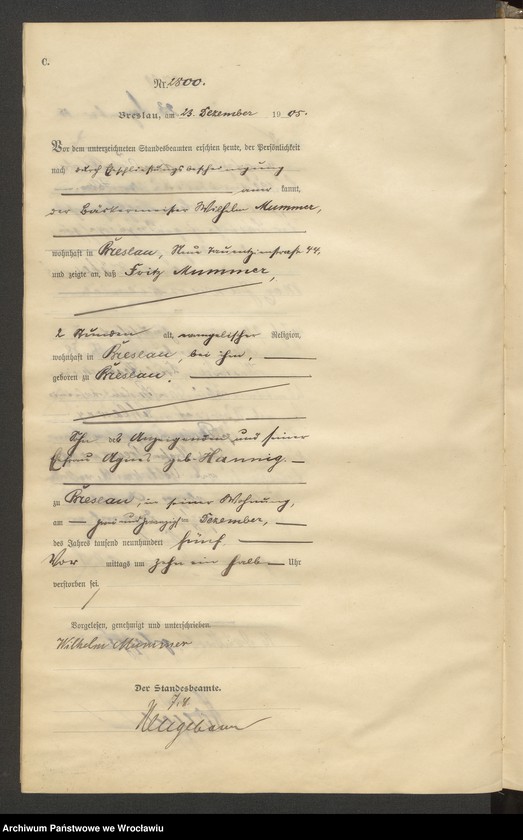 C.
Nr. 2800.
Breslau, am 23. Dezember 1905.
Vor dem unterzeichneten Standesbeamten erschien heute, der Persönlichkeit
nach durch Eheschließungsbescheinigung
aner kannt,
der Bäckermeister Wilhelm Mummer,
wohnhaft in Breslau, Neue Tauentzienstraße 44,
und zeigte an, daß Fritz Mummer,
2 Stunden alt, evangelischer Religion,
wohnhaft in Breslau, bei ihm,
geboren zu Breslau,
Sohn des Anzeigenden und seiner
Ehefrau Agnes geb. Hannig.
zu Breslau, in seiner Wohnung,
am zwei und zwanzigsten Dezember,
des Jahres tausend neunhundert fünf
Vor mittags um zehn ein halb Uhr
verstorben sei.
Vorgelesen, genehmigt und unterschrieben
Wilhelm Mummer
Der Standesbeamte.
Archiwum Państwowe we Wrocławiu